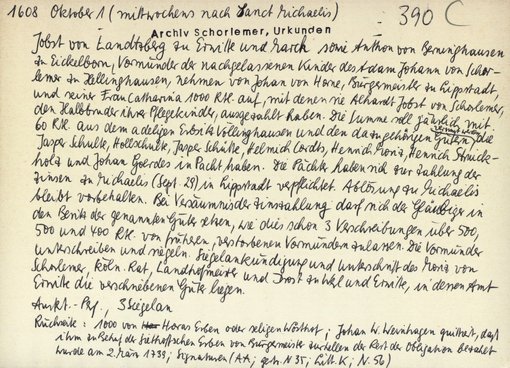 1608 Oktober 1 (mittwochens nach Sanct Michaelis) 390 C
Archiv Schorlemer, Urkunden
Jobst von Landtsberg zu Erwitte und March sowie Anthon von Berninghausen
zu Eickelborn, Vormünder der nachgelassenen Kinder des Adam Johann von Schor-
lemer zu Hellinghausen, nehmen von Johan von Horne, Bürgermeister zu Lippstadt,
und seiner Frau Catharina 1000 Rtl. auf, mit denen sie Alhardt Jobst von Schorlemer,
den Halbbruder ihrer Pflegekinder, ausgezahlt haben. Die Summe soll jährlich mit
60 Rtl. aus dem adeligen Erbsitz Vollinghausen und den dazugehörigen Gütern, die
Jasper Schulte, Hollschulte, Jasper Schulte, Helmich Cordts, Henrich Moriz, Henrich Struck-
holz und Johan Goerdes in Pacht haben. Die Pächter haben sich zur Zahlung der
Zinsen zu Michaelis (Sept. 29) in Lippstadt verpflichtet. Ablösung zu Michaelis
bleibt vorbehalten. Bei Versäumnis der Zinszahlung darf sich der Gläubiger in
den Besitz der genannten Güter setzen, wie dies schon 3 Verschreibungen über 500,
500 und 400 Rtl. von früheren, verstorbenen Vormündern zulassen. Die Vormünder
unterschreiben und siegeln. Siegelankündigung und Unterschrift des Moriz von
Schorlemer, Köln. Rat, Landhofmeister und Drost zu Werl und Erwitte, in dessen Amt
Erwitte die verschriebenen Güter liegen.
Ausf. - Pg., 3 Siegel an
Rückseite: 1000 von Horns Erben oder seligen Wösthof; Johan W. Weinhagen quittiert, daß
ihm zu Behuf der Erben von Bürgermeister der Rest der Obligation bezahlt
wurde am 2. März 1739; Signaturen (AA; getr. N 35; Litt. K; N. 56)